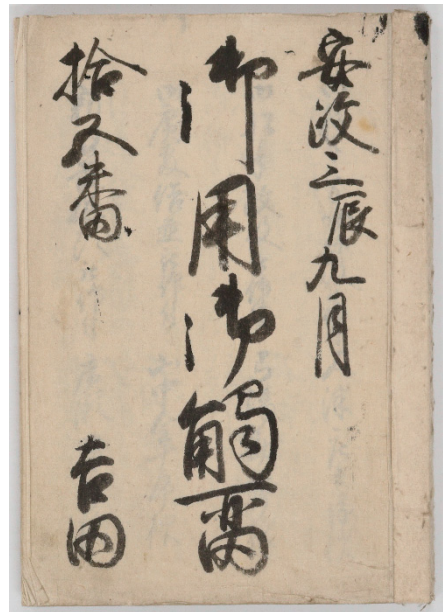 安政三辰九月
御用御觸留
拾五番
吉田